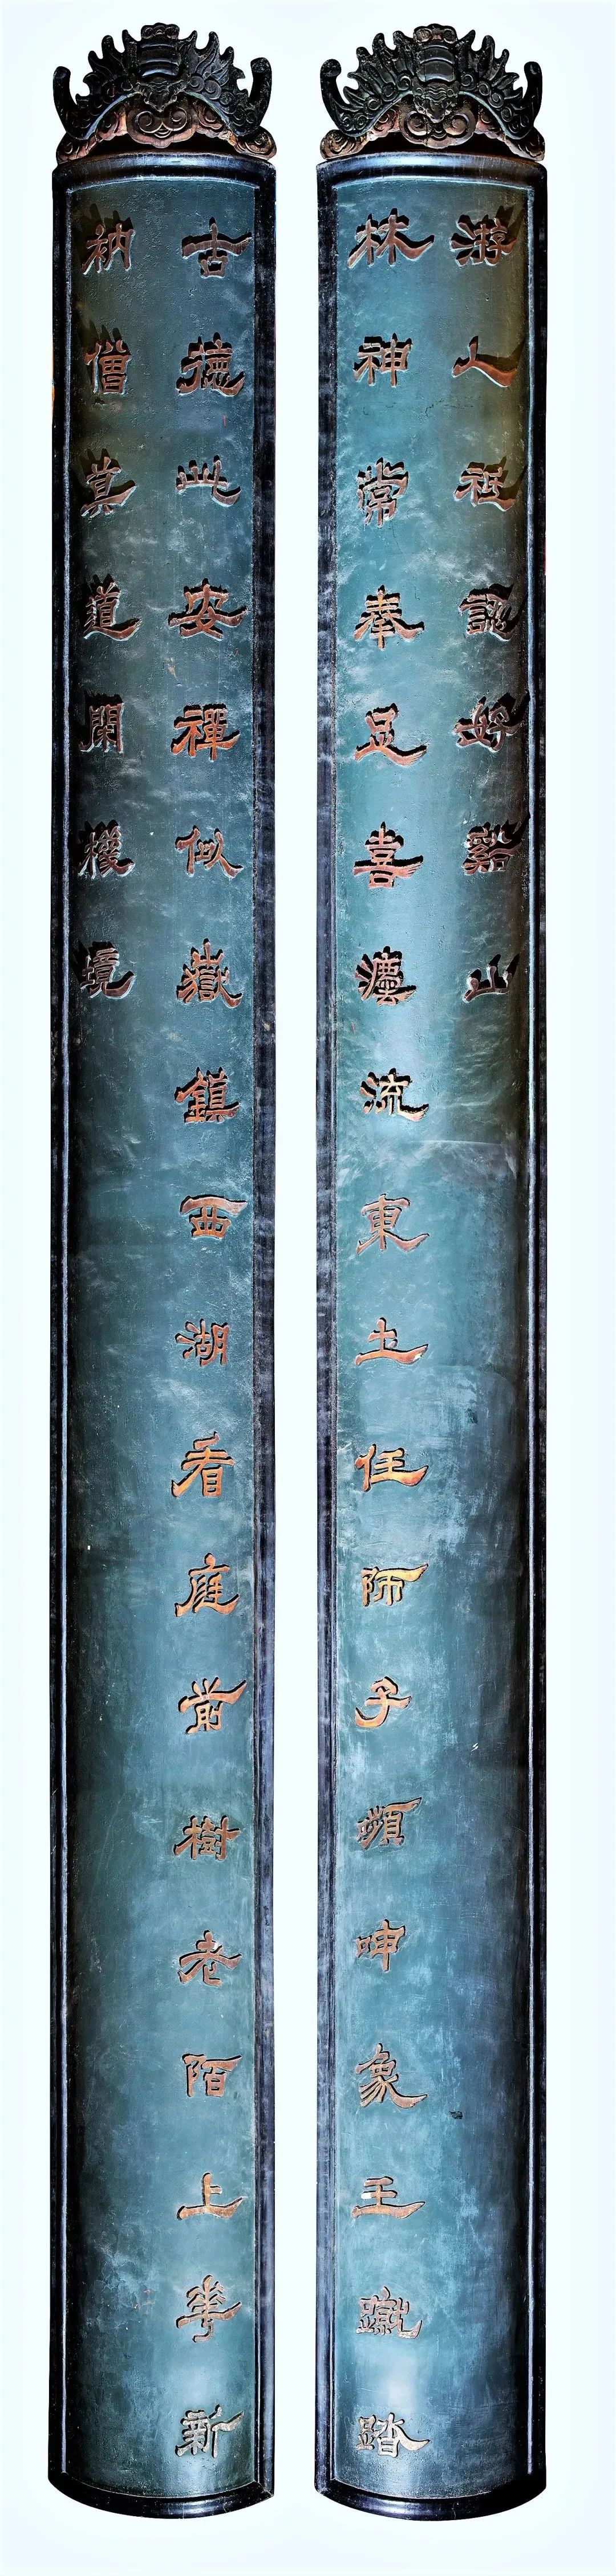 古德此安禪似嶽鎮西湖看庭前樹老陌上華新
衲僧莫道閑機境
林神常奉足喜灋流東土任師子頻呻象王蹴踏
游人祇認好谿山